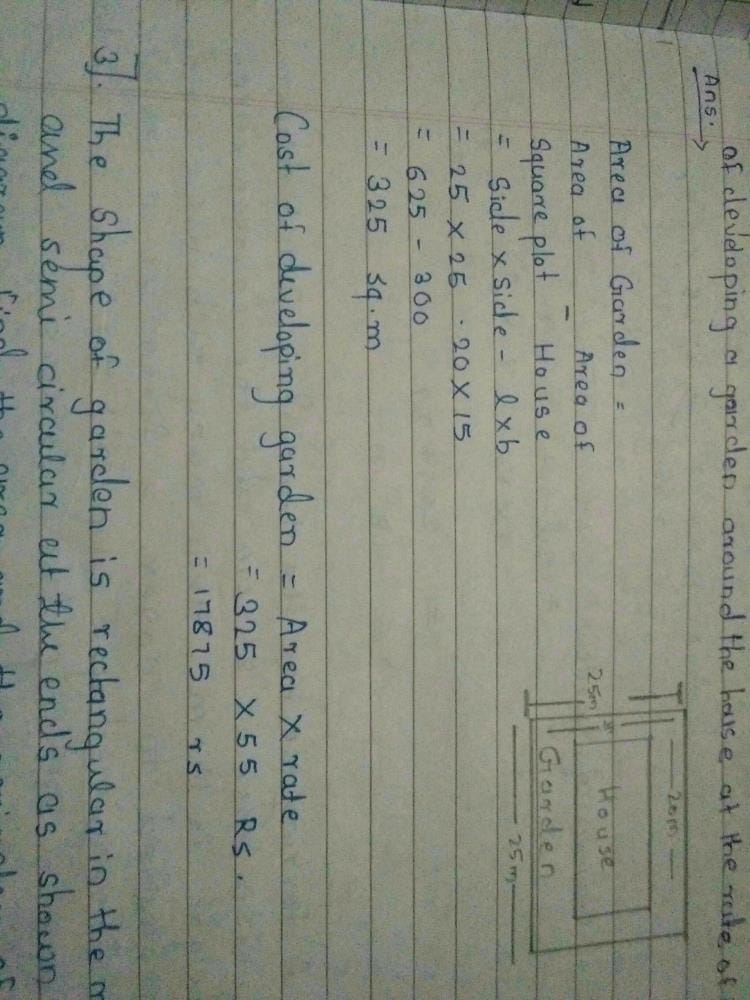 of developing a garden around the house at the rate of
Ans. →
Area of Garden =
Area of - Area of
Square plot House
= Side x Side - l x b
= 25 x 25 - 20 x 15
= 625 - 300
= 325 sq.m
20m
House
25m
Garden
25m
Cost of developing garden = Area x rate
= 325 x 55 Rs.
= 17875 rs
3]. The Shape of garden is rectangular in the
and semi circular at the ends as shown
diagram find the area and the